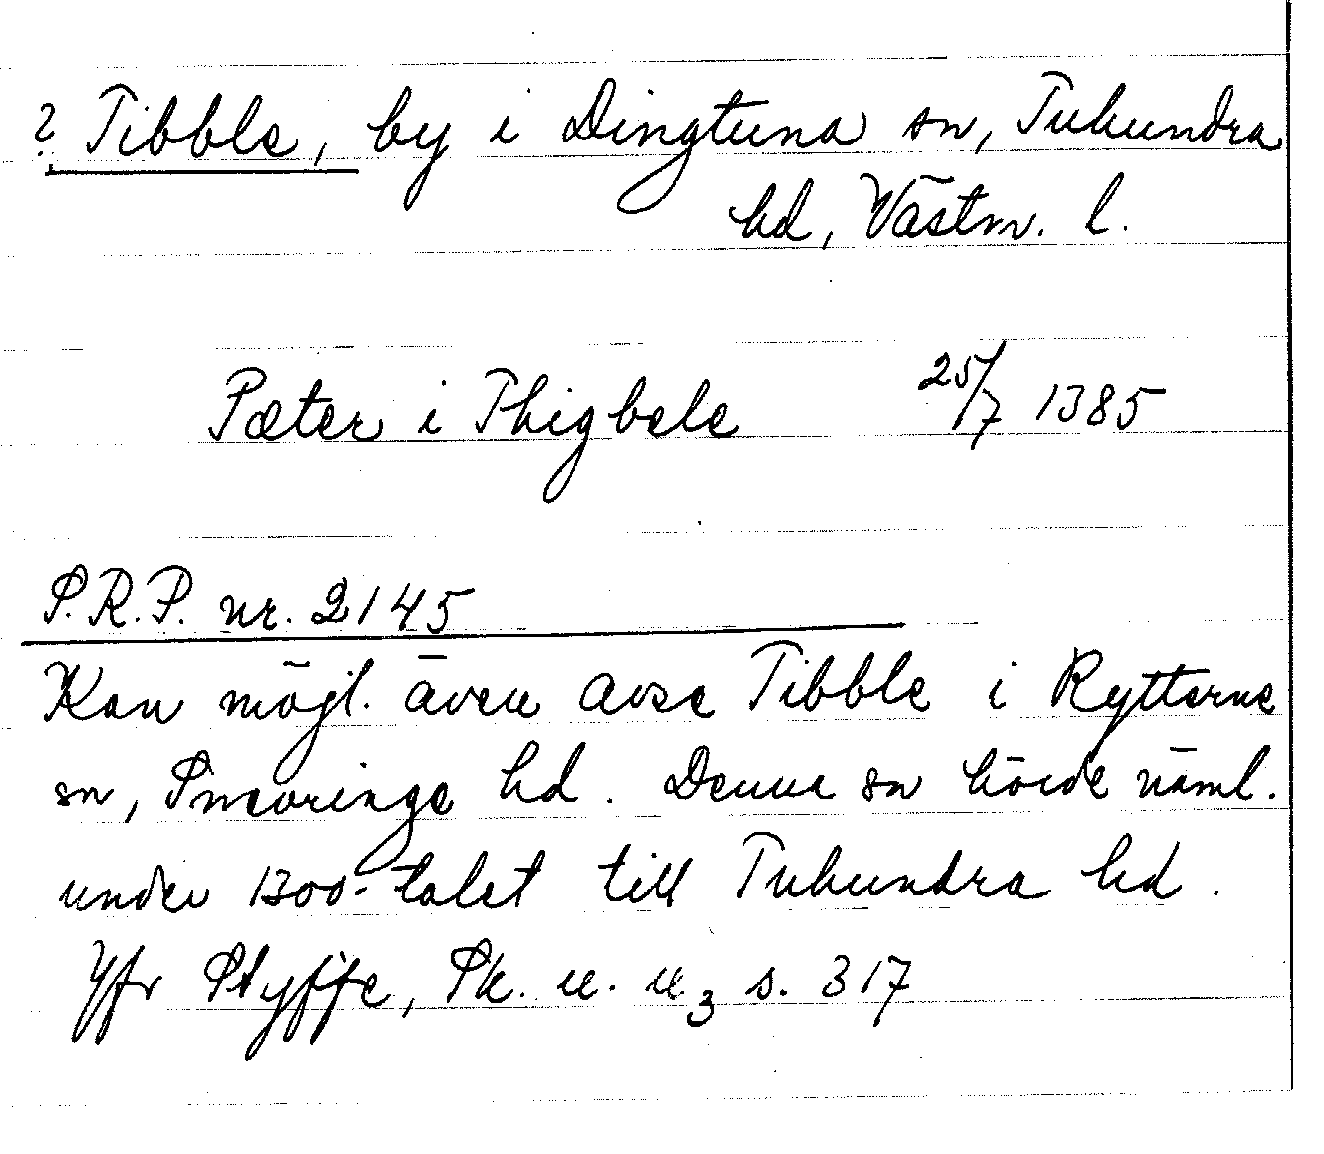 ? Tibble, by i Dingtuna sn, Tuhundra
hd, Västm. l.
Pæter i Thigbele 25/7 1385
S.R.P. nr. 2145
Kan möjl. även avse Tibble i Rytterne
sn, Snevringe hd. Denna sn hörde näml.
under 1300-talet till Tuhundra hd.
Jfr Styffe, Sk. u. u3 s. 317